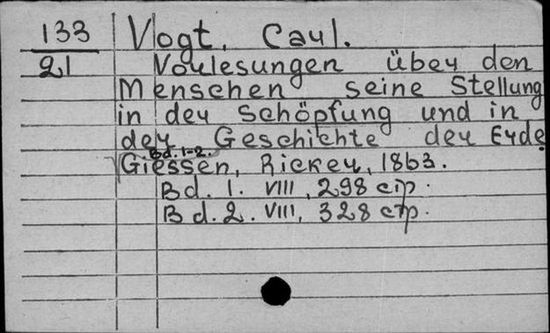 133 Vogt, Carl.
21 Vorlesungen über den
Menschen seine Stellung
in der Schöpfung und in
der Geschichte der Erde
Bd. 1-2.
Giessen, Ricker, 1863.
Bd. 1. VIII, 298 стр.
Bd. 2. VIII, 328 стр.